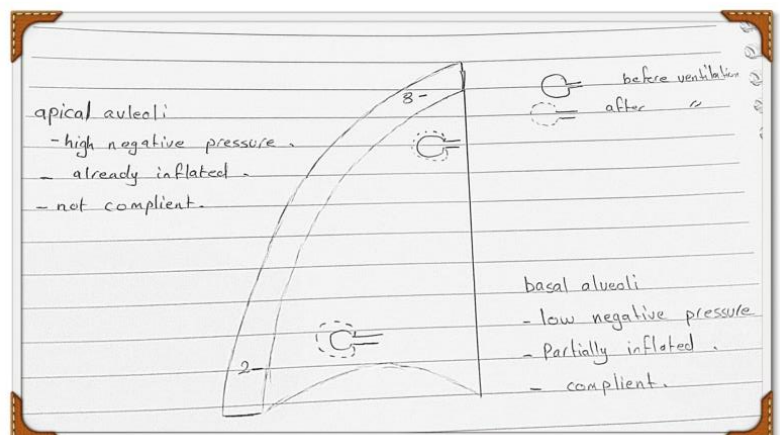 apical avleoli
- high negative pressure.
- already inflated.
- not complient.
8-
before ventilation
after "
2-
basal alveoli
- low negative pressure
- Partially inflated.
- complient.